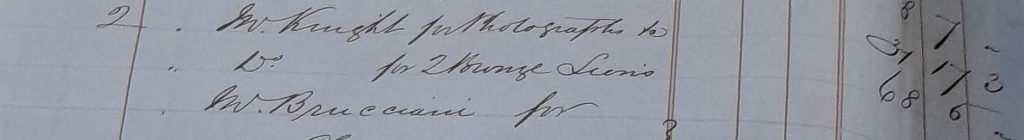 2 " Mr. Knight for Photographs &c 8 7 "
" Do for 2 Bronze Lions 31 17 3
Mr. Brucciani for 68 6